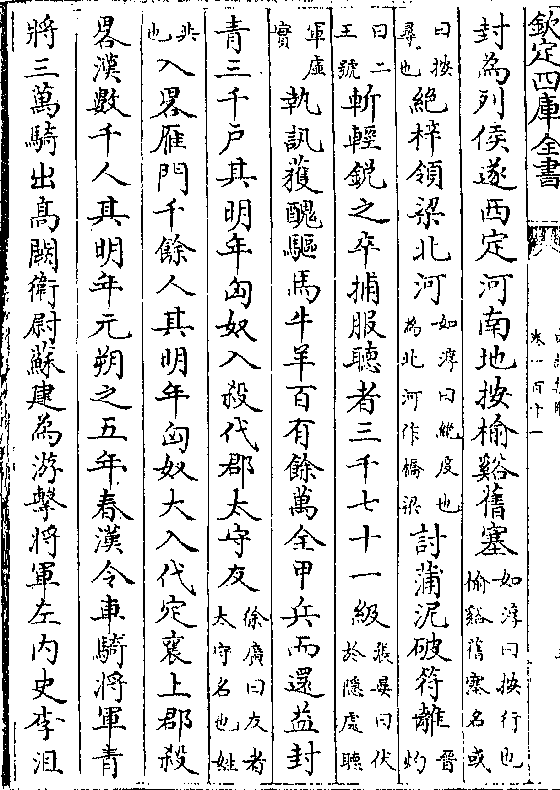 欽定四庫全書
卷一百十一
封為列侯遂西定河南地按榆谿舊塞如淳曰按行也榆谿舊塞名或
曰按尋也絕梓領梁北河如淳曰絕度也為北河作橋梁討蒲泥破符離晉灼
曰二王號斬輕銳之卒捕服聽者三千七十一級張晏曰伏於隱處聽
軍虛實執訊獲醜驅馬牛羊百有餘萬全甲兵而還益封
青三千戶其明年匈奴入殺代郡太守友徐廣曰友者太守名也姓
共也入畧雁門千餘人其明年匈奴大入代定襄上郡殺
畧漢數千人其明年元朔之五年春漢令車騎將軍青
將三萬騎出高闕衛尉蘇建為游擊將軍左內史李沮